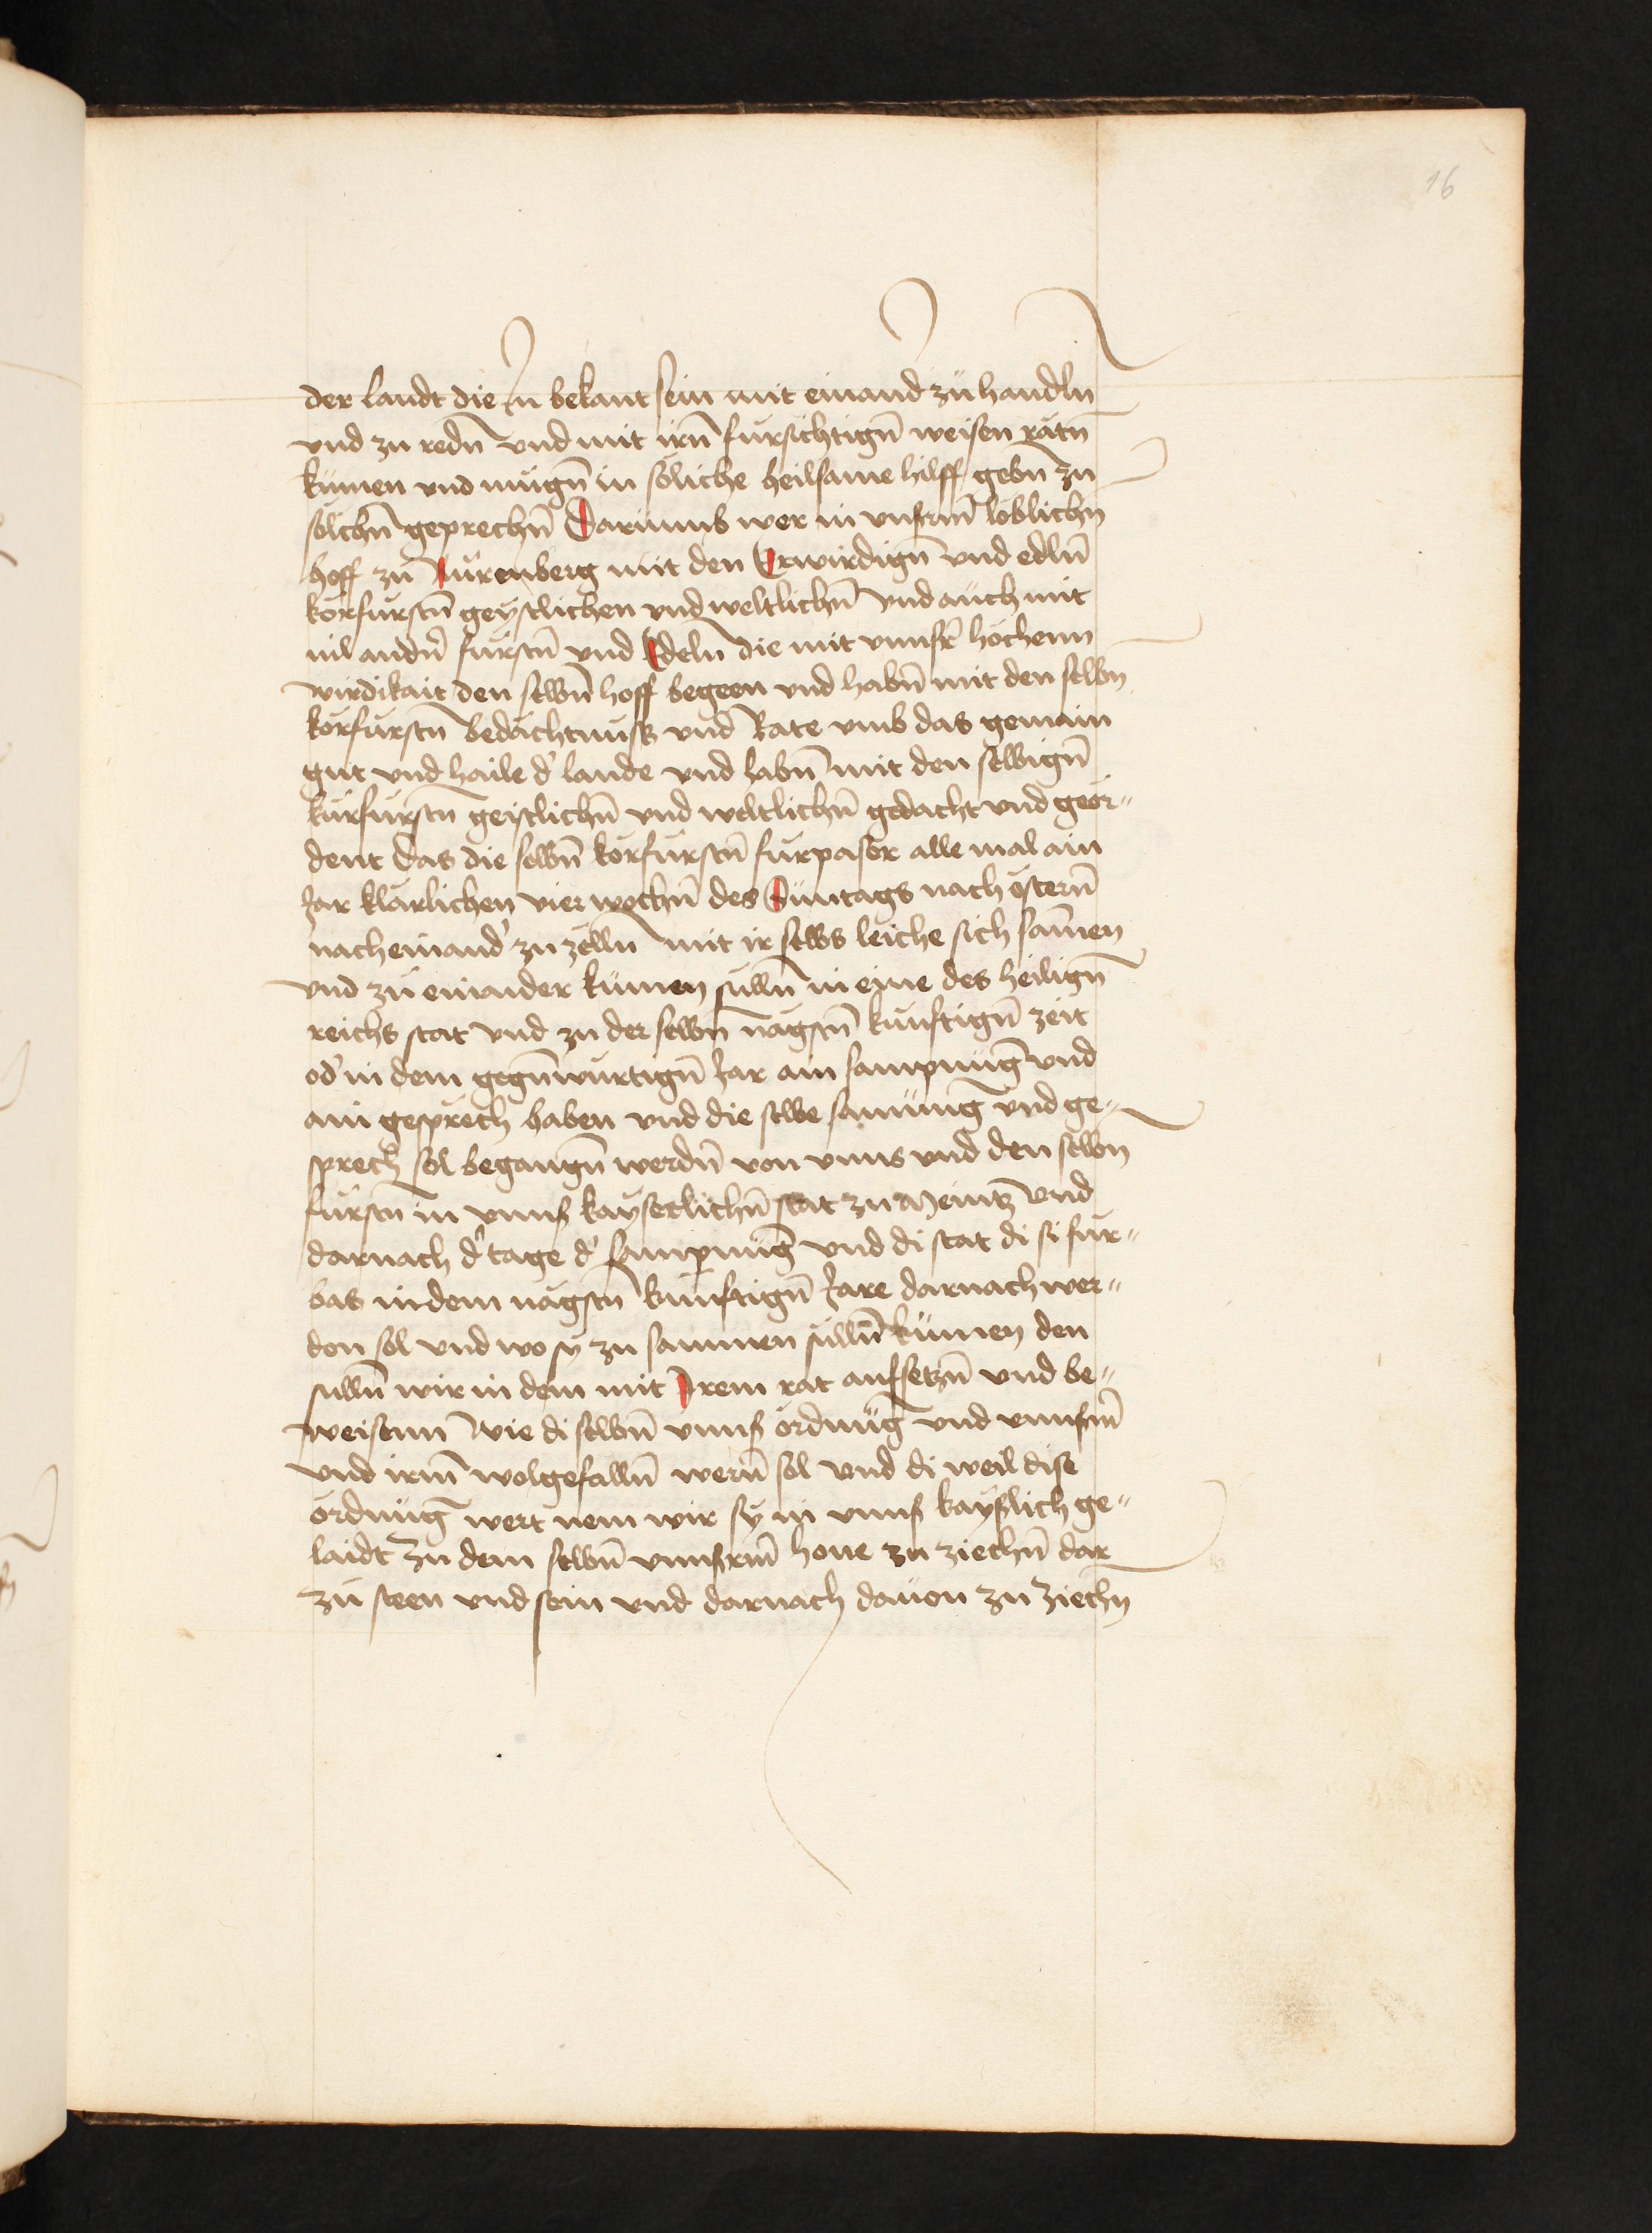 16
der landt die In bekant sein mit einand̕ zu handln̄
vnd zu redn̄ vnd mit irn̄ fursichtign̄ weisen rätn̄
kumen vnd mugn̄ in söliche heilsame hilff gebn̄ zu
sölchn̄ geprechn̄ Darumb wer in vnserm̄ löblichn̄
hoff zu Nurenberg mit den Erwirdign̄ vnd edln̄
korfurstn̄ geystlichen vnd weltlichn̄ vnd auch mit
uil andn̄ furstn̄ vnd Edeln die mit vnnsr̄ höchenn
wirdikait den selbn̄ hoff begeen vnd habn̄ mit den selbn̄
korfurstn̄ bedachtnuss vnd Rate vmb das gemain
gut vnd haile d̕ lande vnd habn̄ mit den selbign̄
kurfurstn̄ geistlichn̄ vnd weltlichn̄ gedacht vnd geor„
dent das die selbn̄ korfurstn̄ furpaser alle mal ain
Jar klarlichen vier wochn̄ des Suntags nach östern̄
nach einand̕ zu zelln̄ mit ir selbs leiche sich sam̄en
vnd zu einander kumen sulln̄ in eine des heilign̄
reichs stat vnd zu der selbn̄ nagstn̄ kunftign̄ zeit
od̕ in dem gegn̄wurtign̄ Jar ain sampnūg vnd
ain gesprech haben vnd die selbe samūng vnd ge„
sprech sol begangn̄ werdn̄ von vnns vnd den selbn̄
furstn̄ in vnnsr̄ kayserlichn̄ stat zu Meintz vnd
darnach d̕ tage d̕ sampnūg vnd di stat di si fur„
bas in dem nagstn̄ kunftign̄ Jare darnach wer„
den sol vnd wo sy zu samnen sulln̄ kumen den
sulln̄ wir in dem mit Irem rat aufsetzn̄ vnd be„
weisenn wie di selbn̄ vnnsr̄ ordnūg vnd vnnserm̄
vnd irm̄ wolgefalln̄ wern̄ sol vnd di weil dise
ordnūg wert nem wir sy in vnnsr̄ kayslich ge„
laidt zu dem selbn̄ vnnserm̄ houe zu ziechn̄ dar
zu steen vnd sein vnd darnach dauon zu ziechn̄